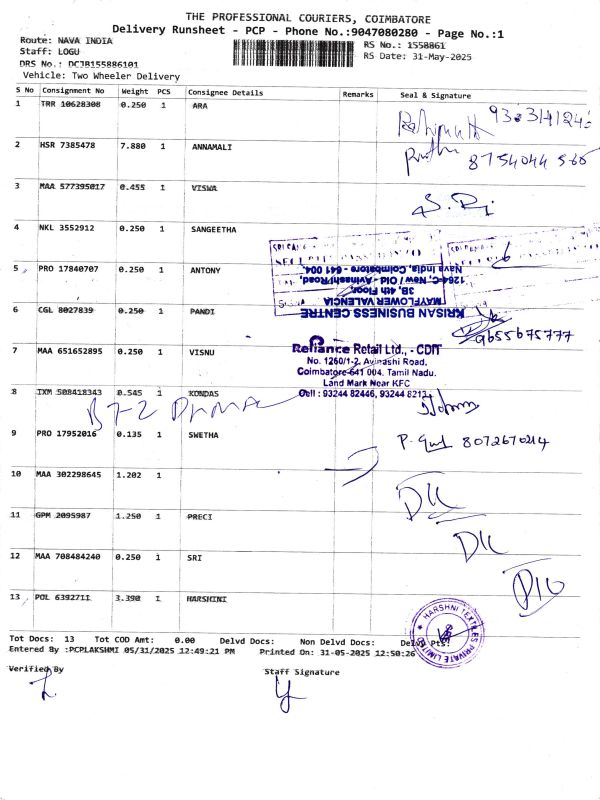 THE PROFESSIONAL COURIERS, COIMBATORE
Delivery Runsheet - PCP - Phone No.:9047080280 - Page No.:1
Route: NAVA INDIA
RS No.: 1558861
Staff: LOGU
RS Date: 31-May-2025
DRS No.: DCJB155886101
Vehicle: Two Wheeler Delivery
S No Consignment No Weight PCS Consignee Details Remarks Seal & Signature
1 TRR 10628308 0.250 1 ARA
2 HSR 7385478 7.880 1 ANNAMALI
8754044566
3 MAA 577395017 0.455 1 VISWA
4 NKL 3552912 0.250 1 SANGEETHA
5 PRO 17840707 0.250 1 ANTONY
KRISAN BUSINESS CENTRE
MAYFLOWER VALENCIA
3B, 4th Floor,
1264-C, New / Old - Avinashi Road,
Nava India, Coimbatore - 641 004.
6 CGL 8027839 0.250 1 PANDI
9655675777
7 MAA 651652895 0.250 1 VISNU
Reliance Retail Ltd., - CDIT
No. 1260/1-2, Avinashi Road,
Coimbatore-641 004. Tamil Nadu.
Land Mark Near KFC
Cell : 93244 82446, 93244
8 IXM 508418343 0.545 1 KONDAS
9 PRO 17952016 0.135 1 SWETHA
8072670214
10 MAA 302298645 1.202 1
11 GPM 2095987 1.250 1 PRECI
12 MAA 708484240 0.250 1 SRI
13 POL 6392711 3.390 1 HARSHINI
HARSHNI TEXTILES PRIVATE LIMITED
Tot Docs: 13 Tot COD Amt: 0.00 Delvd Docs: Non Delvd Docs: Delvd Pts:
Entered By :PCPLAKSHMI 05/31/2025 12:49:21 PM Printed On: 31-05-2025 12:50:26
Verified By Staff Signature